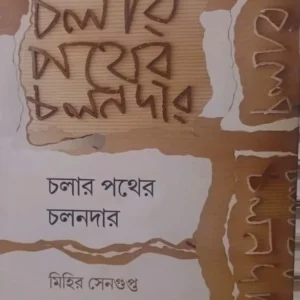 চলার
পথের
চলনদার
চলার পথের
চলনদার
মিহির সেনগুপ্ত